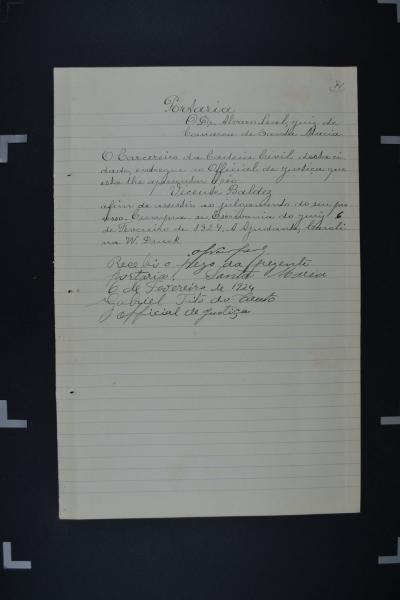 Portaria
O Dr. Alvaro Leal, juiz da
Comarca de Santa Maria
O Carcereiro da Cadeia Civil desta ci
dade, entregue ao Official de justiça que
esta lhe apresentar o réo
Vicente Baldez
afim de assistir ao julgamento do seu pro
cesso. Cumpra-se. Escrivania do jury, 6
de Fevereiro de 1924. A Ajudante, Caroli
na W. Druck
Recebi o da prezente
portaria. Santa Maria
6 de Fevereiro de 1924
Gabriel do
official de justiça